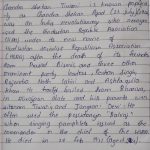 Chandra Shekhar Tiwari is known popularly
as Chandra Shekhar Azad (23 July 1906)
was an Indian revolutionary who reorganised
the Hindustan Republic Association
(HRA) under its new name of
Hindustan Socialist Republican Association
(HSRA) after the death of its founder
Ram Prasad Bismil and three other
prominent party leaders Roshan Singh,
Rajendra Nath Lahiri and Ashfaqulla
Khan. He
as
Tiwari and Jagrani Devi. He
often used the pseudonym "Balraj"
when signing pamphlets issued as the
commander in the chief of the HSRA.
He died in 27 Feb this